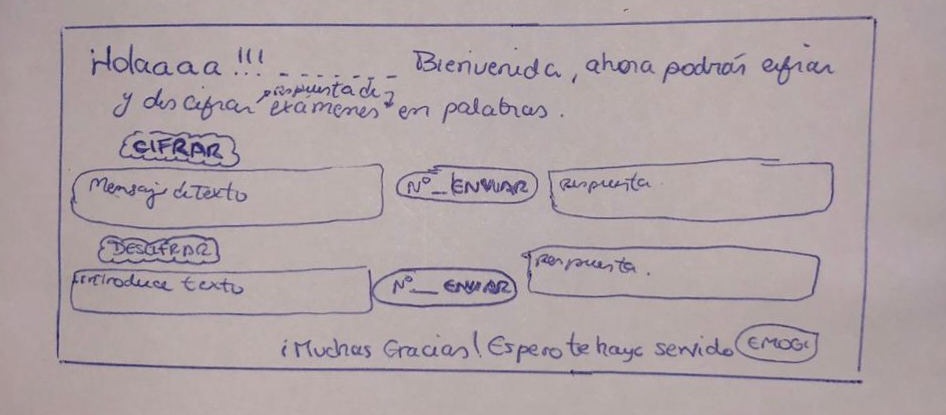 ¡Holaaaa!!! _ _ _ _ _ _ _ Bienvenida, ahora podrás cifrar
y descifrar respuesta de examenes en palabras.
CIFRAR
Mensaje de Texto
Nº_ ENVIAR
respuesta.
DESCIFRAR
introduce texto
Nº__ ENVIAR
respuesta.
¡Muchas Gracias! Espero te haya servido EMOGI